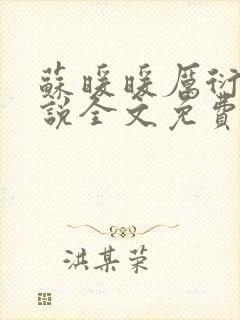 蘇暖暖厲衍
說全文免費
洪某荣